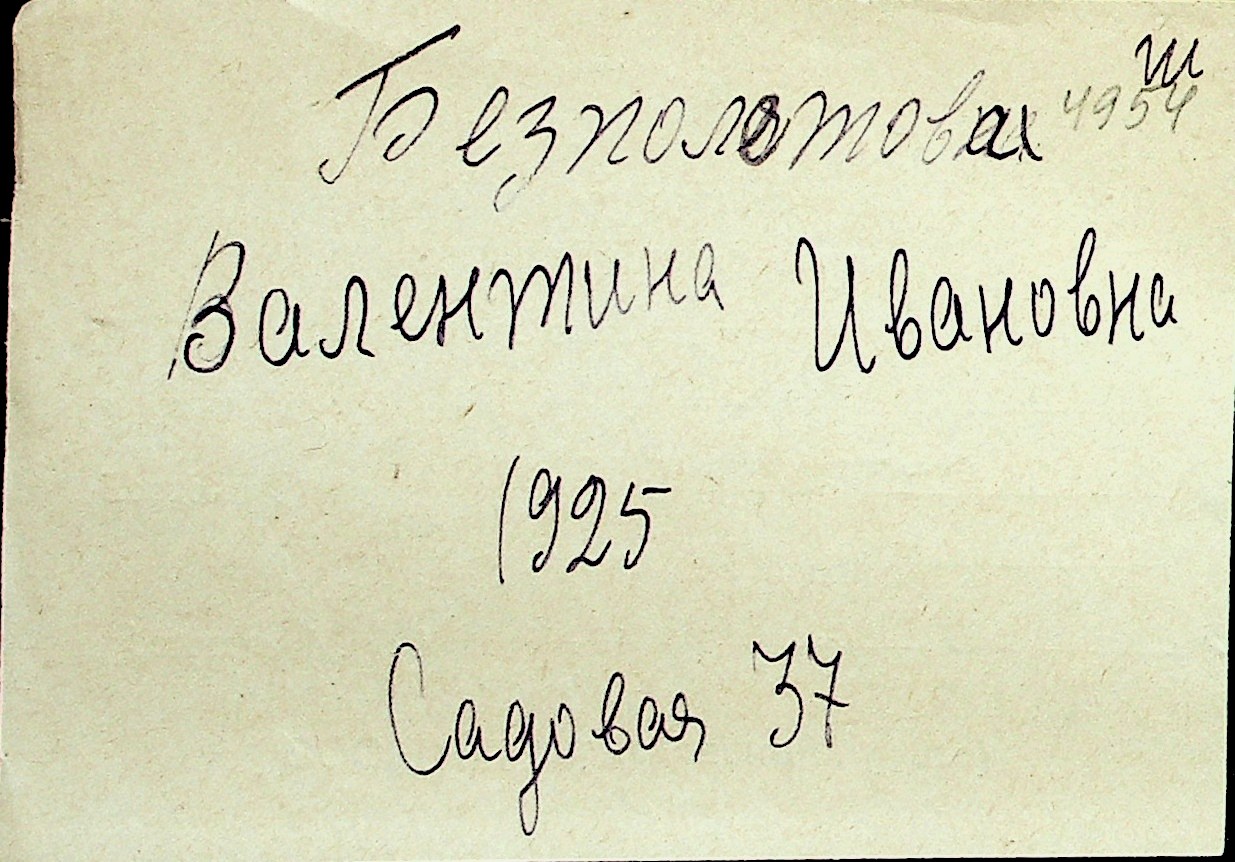 ш
Безполотова 4954
Валентина Ивановна
1925
Садовая 37